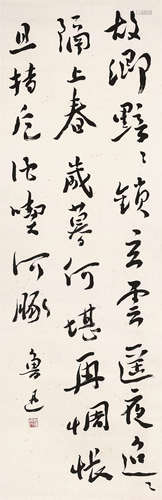 故鄉黯〻鎖玄雲遙夜迢〻
隔上春歲暮何堪再惆悵
且持卮酒喫河豚
魯迅